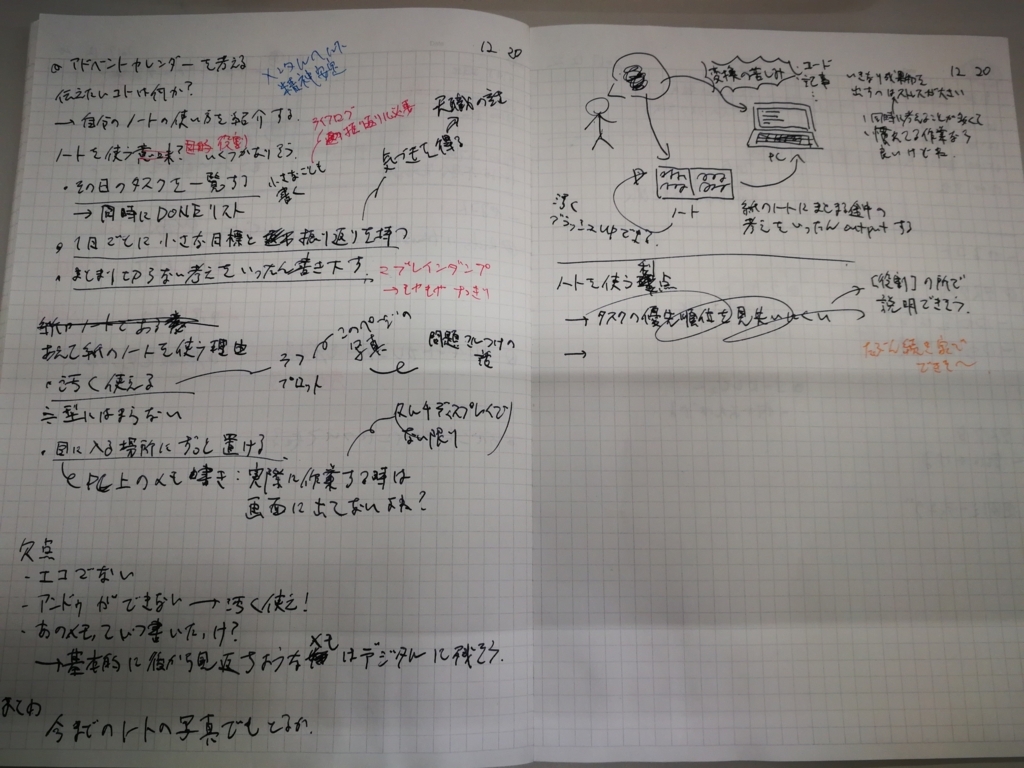 12 20
アドベントカレンダーを考える
メンタルヘルス
精神安定
伝えたいコトは何か?
→ 自分のノートの使い方を紹介する
ノートを使う意味? いくつかありそう.
目的 役割
・その日のタスクを一覧する
→ 同時にDONEリスト
小さなことも
書く
ライフログ
振り返りに必要
気づきを得る
・1日ごとに小さな目標と振り返りを持つ
・まとまりきらない考えをいったん書き下す.
ブレインダンプ
→ もやもや すっきり
あえて紙のノートを使う理由
・汚く使える
≒型にはまらない
ラフ
プロット
このページの
写真
問題 の
話
・目に入る場所にずっと置ける
PC上のメモ書き:実際に作業する時は
画面に出てないよね?
マルチディスプレイで
ない限り
欠点
・エコでない
・アンドゥができない → 汚く使え!
・あのメモっていつ書いたっけ?
→基本的に後から見返すような メモ はデジタルに残そう.
まとめ
今までのノートの写真でものせるか.
12 20
変換の苦しみ
コード
記事
⋮
PC
いきなり成果物を
出すのはストレスが大きい
同時に考えることが多くて
慣れてる作業なら
良いけどね
ノート
深く
ブラッシュUPできる
紙のノートにまとまる途中の
考えをいったんoutputする
ノートを使う利点
→ タスクの優先順位を見失いにくい
[役割]の所で
説明できそう.
→